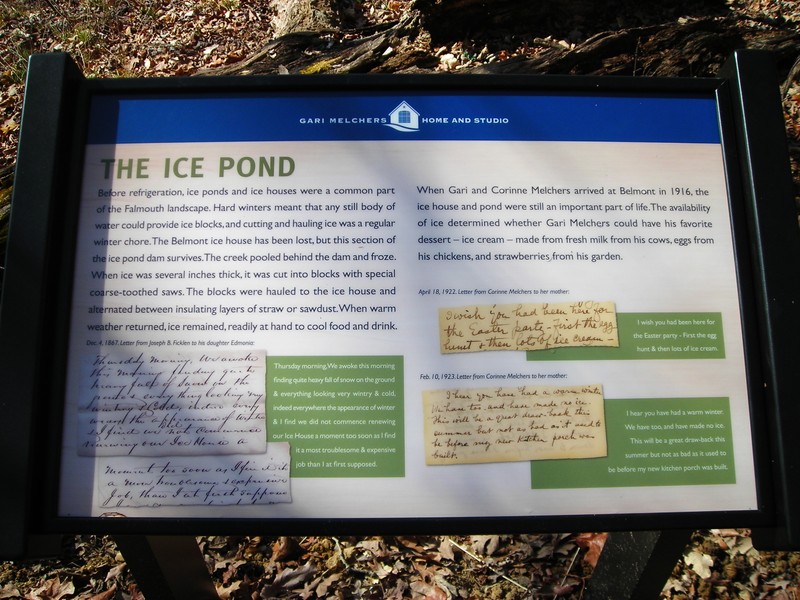 GARI MELCHERS HOME AND STUDIO
THE ICE POND
Before refrigeration, ice ponds and ice houses were a common part
of the Falmouth landscape. Hard winters meant that any still body of
water could provide ice blocks, and cutting and hauling ice was a regular
winter chore. The Belmont ice house has been lost, but this section of
the ice pond dam survives. The creek pooled behind the dam and froze.
When ice was several inches thick, it was cut into blocks with special
coarse-toothed saws. The blocks were hauled to the ice house and
alternated between insulating layers of straw or sawdust. When warm
weather returned, ice remained, readily at hand to cool food and drink.
Dec. 4, 1867, Letter from Joseph B. Ficklen to his daughter Edmonia:
Thursday Morning, We awoke
this Morning finding quite
heavy fall of Snow on the
ground & everything looking very
wintry & Cold, indeed every
where the appearance of winter
& I find we did not commence
renewing our Ice House a
Moment too soon as I find it
a more troublesome & expensive
Job, than I at first supposed
Thursday morning, We awoke this morning
finding quite heavy fall of snow on the ground
& everything looking very wintry & cold,
indeed everywhere the appearance of winter
& I find we did not commence renewing
our Ice House a moment too soon as I find
it a most troublesome & expensive
job than I at first supposed.
When Gari and Corinne Melchers arrived at Belmont in 1916, the
ice house and pond were still an important part of life. The availability
of ice determined whether Gari Melchers could have his favorite
dessert – ice cream – made from fresh milk from his cows, eggs from
his chickens, and strawberries from his garden.
April 18, 1922, Letter from Corinne Melchers to her mother:
I wish you had been here for
the Easter party - First the egg
hunt & then lots of ice cream -
I wish you had been here for
the Easter party - First the egg
hunt & then lots of ice cream.
Feb. 10, 1923, Letter from Corinne Melchers to her mother:
I hear you have had a warm winter
We have too and have made no ice.
This will be a great draw-back this
summer but not as bad as it used to
be before my new kitchen porch was
built.
I hear you have had a warm winter.
We have too, and have made no ice.
This will be a great draw-back this
summer but not as bad as it used to
be before my new kitchen porch was built.